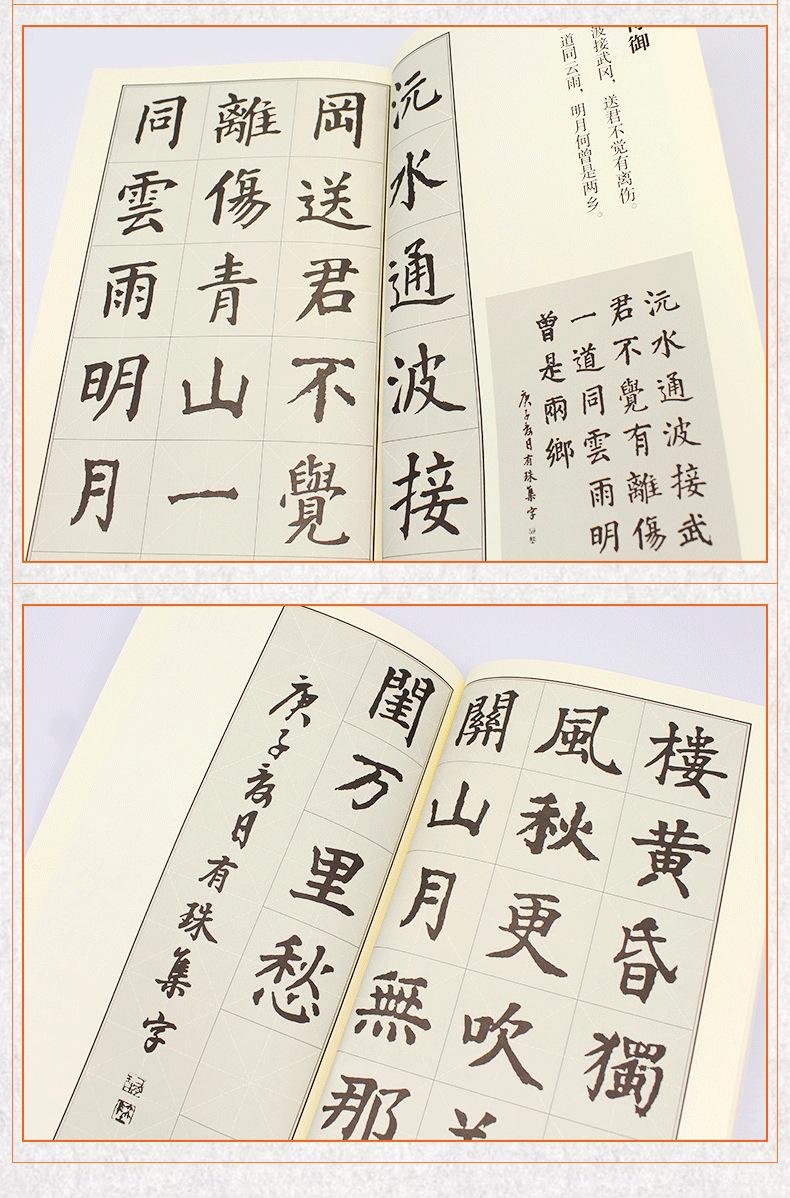 御
波接武冈，送君不觉有离伤。
道同云雨，明月何曾是两乡。
沅水通波接武
君不覺有離傷
一道同雲雨明
曾是兩鄉
庚子夏月有珠集字
沅水通波接
岡送君不覺
離傷青山一
同雲雨明月
樓黄昏獨
風秋更吹
關山月無那
閨万里愁
庚子夏月有珠集字